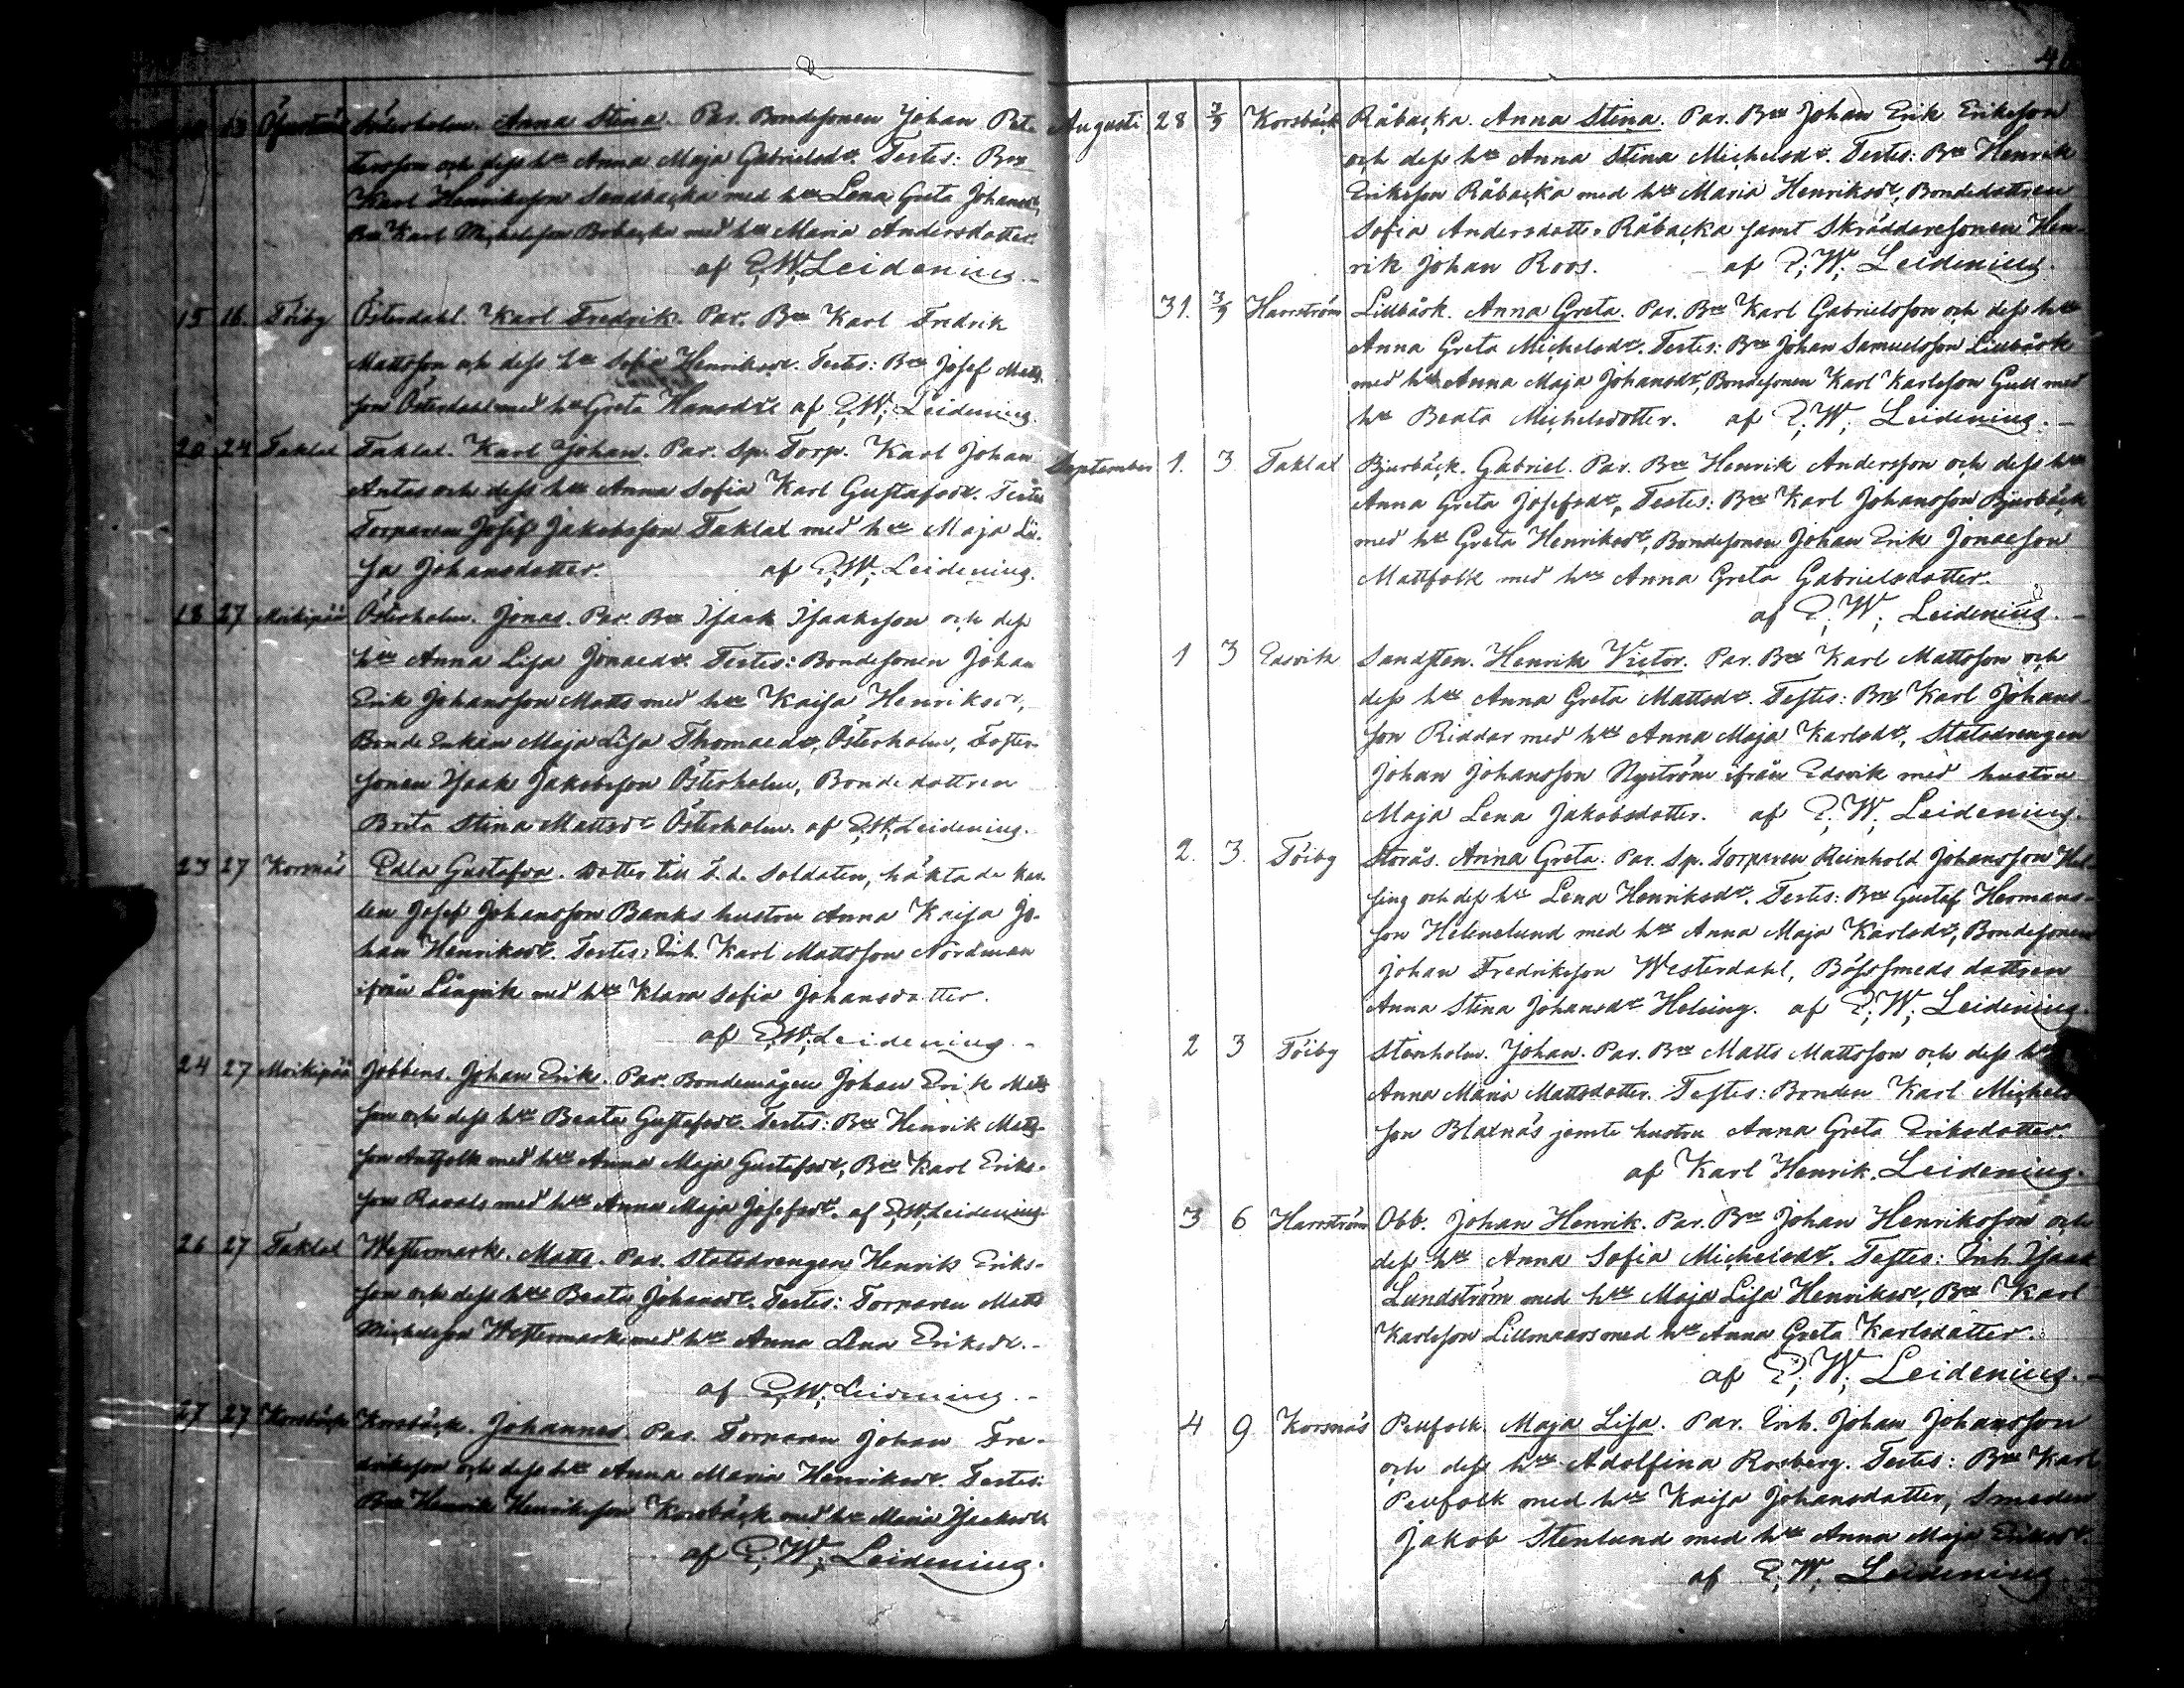 13 Söderholm. Anna Stina. Par. Bondesonen Johan Pet-
tersson och dess hu Anna Maja Gabrielsdr. Testes: Bn
Karl Henriksson Sandbacka med hu Lena Greta Johansdr,
Bn Karl Michelsson Bobacka med hu Maria Andersdotter.
af E. W. Leidenius.
15 16. Töiby Österdahl. Karl Fredrik. Par. Bn Karl Fredrik
Mattsson och dess hu Sofia Henriksdr. Testes: Bn Josef Matts
son Österdahl med hu Greta Hansdr af E. W. Leidenius.
20 24 Taklax Taklax. Karl Johan. Par. Sp. Torp. Karl Johan
Antas och dess hu Anna Sofia Karl Gustafsdr. Testes
Torparen Josef Jakobsson Taklax med hu Maja Li-
sa Johansdotter. af E. W. Leidenius.
18 27 Moikipää Österholm. Jonas. Par. Bn Isaak Isaksson och dess
hu Anna Lisa Jonasdr. Testes: Bondesonen Johan
Erik Johansson Matts med hu Kaisa Henriksdr,
Bonde Enkan Maja Lisa Thomasdr, Österholm, Foster-
sonen Isaak Jakobsson Österholm, Bondedottren
Brita Stina Mattsdr Österholm. af E. W. Leidenius.
23 27 Korsnäs Edla Gustafva. Dotter till f. d. Soldaten, häktade
Josef Johansson Banks hustru Anna Kaisa Jo-
han Henriksdr. Testes: Inh. Karl Mattsson Nordman
ifrån Långvik med hu Klara Sofia Johansdotter.
af E. W. Leidenius.
24 27 Moikipää Jobbens. Johan Erik. Par. Bondemågen Johan Erik Matts
son och dess hu Beata Gustafsdr. Testes: Bn Henrik Matts-
son Antfolk med hu Anna Maja Gustafsdr, Bn Karl Eriks-
son Ravals med hu Anna Maja Josefsdr. af E. W. Leidenius
26 27 Taklax Westermark. Matts. Par. Statsdrengen Henrik Eriks-
son och dess hu Beata Johansdr. Testes: Torparen Matts
Michelsson Westermark med hu Anna Lena Eriksdr.
af E. W. Leidenius.
27 27 Korsbäck Korsbäck. Johannes. Par. Torparen Johan Fre-
driksson och dess hu Anna Maria Henriksdr. Testes:
Bn Henrik Henriksson Korsbäck med hu Maria Isaksdr
af E. W. Leidenius.
Augusti 28 3/9 Korsbäck Råbacka. Anna Stina. Par. Bn Johan Erik Eriksson
och dess hu Anna Stina Michelsdr. Testes: Bn Henrik
Eriksson Råbacka med hu Maria Henriksdr, Bondedottren
Sofia Andersdotter Råbacka samt Skräddaresonen Hen-
rik Johan Roos. af E. W. Leidenius.
31. 3/9 Harrström Lillbåsk. Anna Greta. Par. Bn Karl Gabrielsson och dess hu
Anna Greta Michelsdr. Testes: Bn Johan Samuelsson Lillbåsk
med hu Anna Maja Johansdr, Bondesonen Karl Karlsson Gull med
hu Beata Michelsdotter. af E. W. Leidenius.
September 1. 3 Taklax Bjurbäck. Gabriel. Par. Bn Henrik Andersson och dess hu
Anna Greta Josefsdr, Testes: Bn Karl Johansson Bjurbäck
med hu Greta Henriksdr, Bondesonen Johan Erik Jonasson
Mattfolk med hu Anna Greta Gabrielsdotter.
af E. W. Leidenius.
1 3 Edsvik Sandsten. Henrik Victor. Par. Bn Karl Mattsson och
dess hu Anna Greta Mattsdr. Testes: Bn Karl Johans-
son Riddar med hu Anna Maja Karlsdr, Statsdrengen
Johan Johansson Nyström ifrån Edsvik med hustru
Maja Lena Jakobsdotter. af E. W. Leidenius.
2. 3. Töiby Storås. Anna Greta. Par. Sp. Torparen Reinhold Johansson Hel-
sing och dess hu Lena Henriksdr. Testes: Bn Gustaf Hermans-
son Helenelund med hu Anna Maja Karlsdr, Bondesonen
Johan Fredriksson Westerdahl, Bössmedsdottren
Anna Stina Johansdr Helsing. af E. W. Leidenius.
2 3 Töiby Stenholm. Johan. Par. Bn Matts Mattsson och dess hu
Anna Maria Mattsdotter. Testes: Bonden Karl Michels
son Blaxnäs jemte hustru Anna Greta Eriksdotter.
af Karl Henrik Leidenius.
3 6 Harrström Obb. Johan Henrik. Par. Bn Johan Henriksson och
dess hu Anna Sofia Michelsdr. Testes: Inh. Isaak
Lundström med hu Maja Lisa Henriksdr, Bn Karl
Karlsson Lillmaars med hu Anna Greta Karlsdotter.
af E. W. Leidenius.
4 9 Korsnäs Pellfolk. Maja Lisa. Par. Inh. Johan Johansson
och dess hu Adolfina Rosberg. Testes: Bn Karl
Pellfolk med hu Kaisa Johansdotter, Smeden
Jakob Stenlund med hu Anna Maja Eriksdr.
af E. W. Leidenius